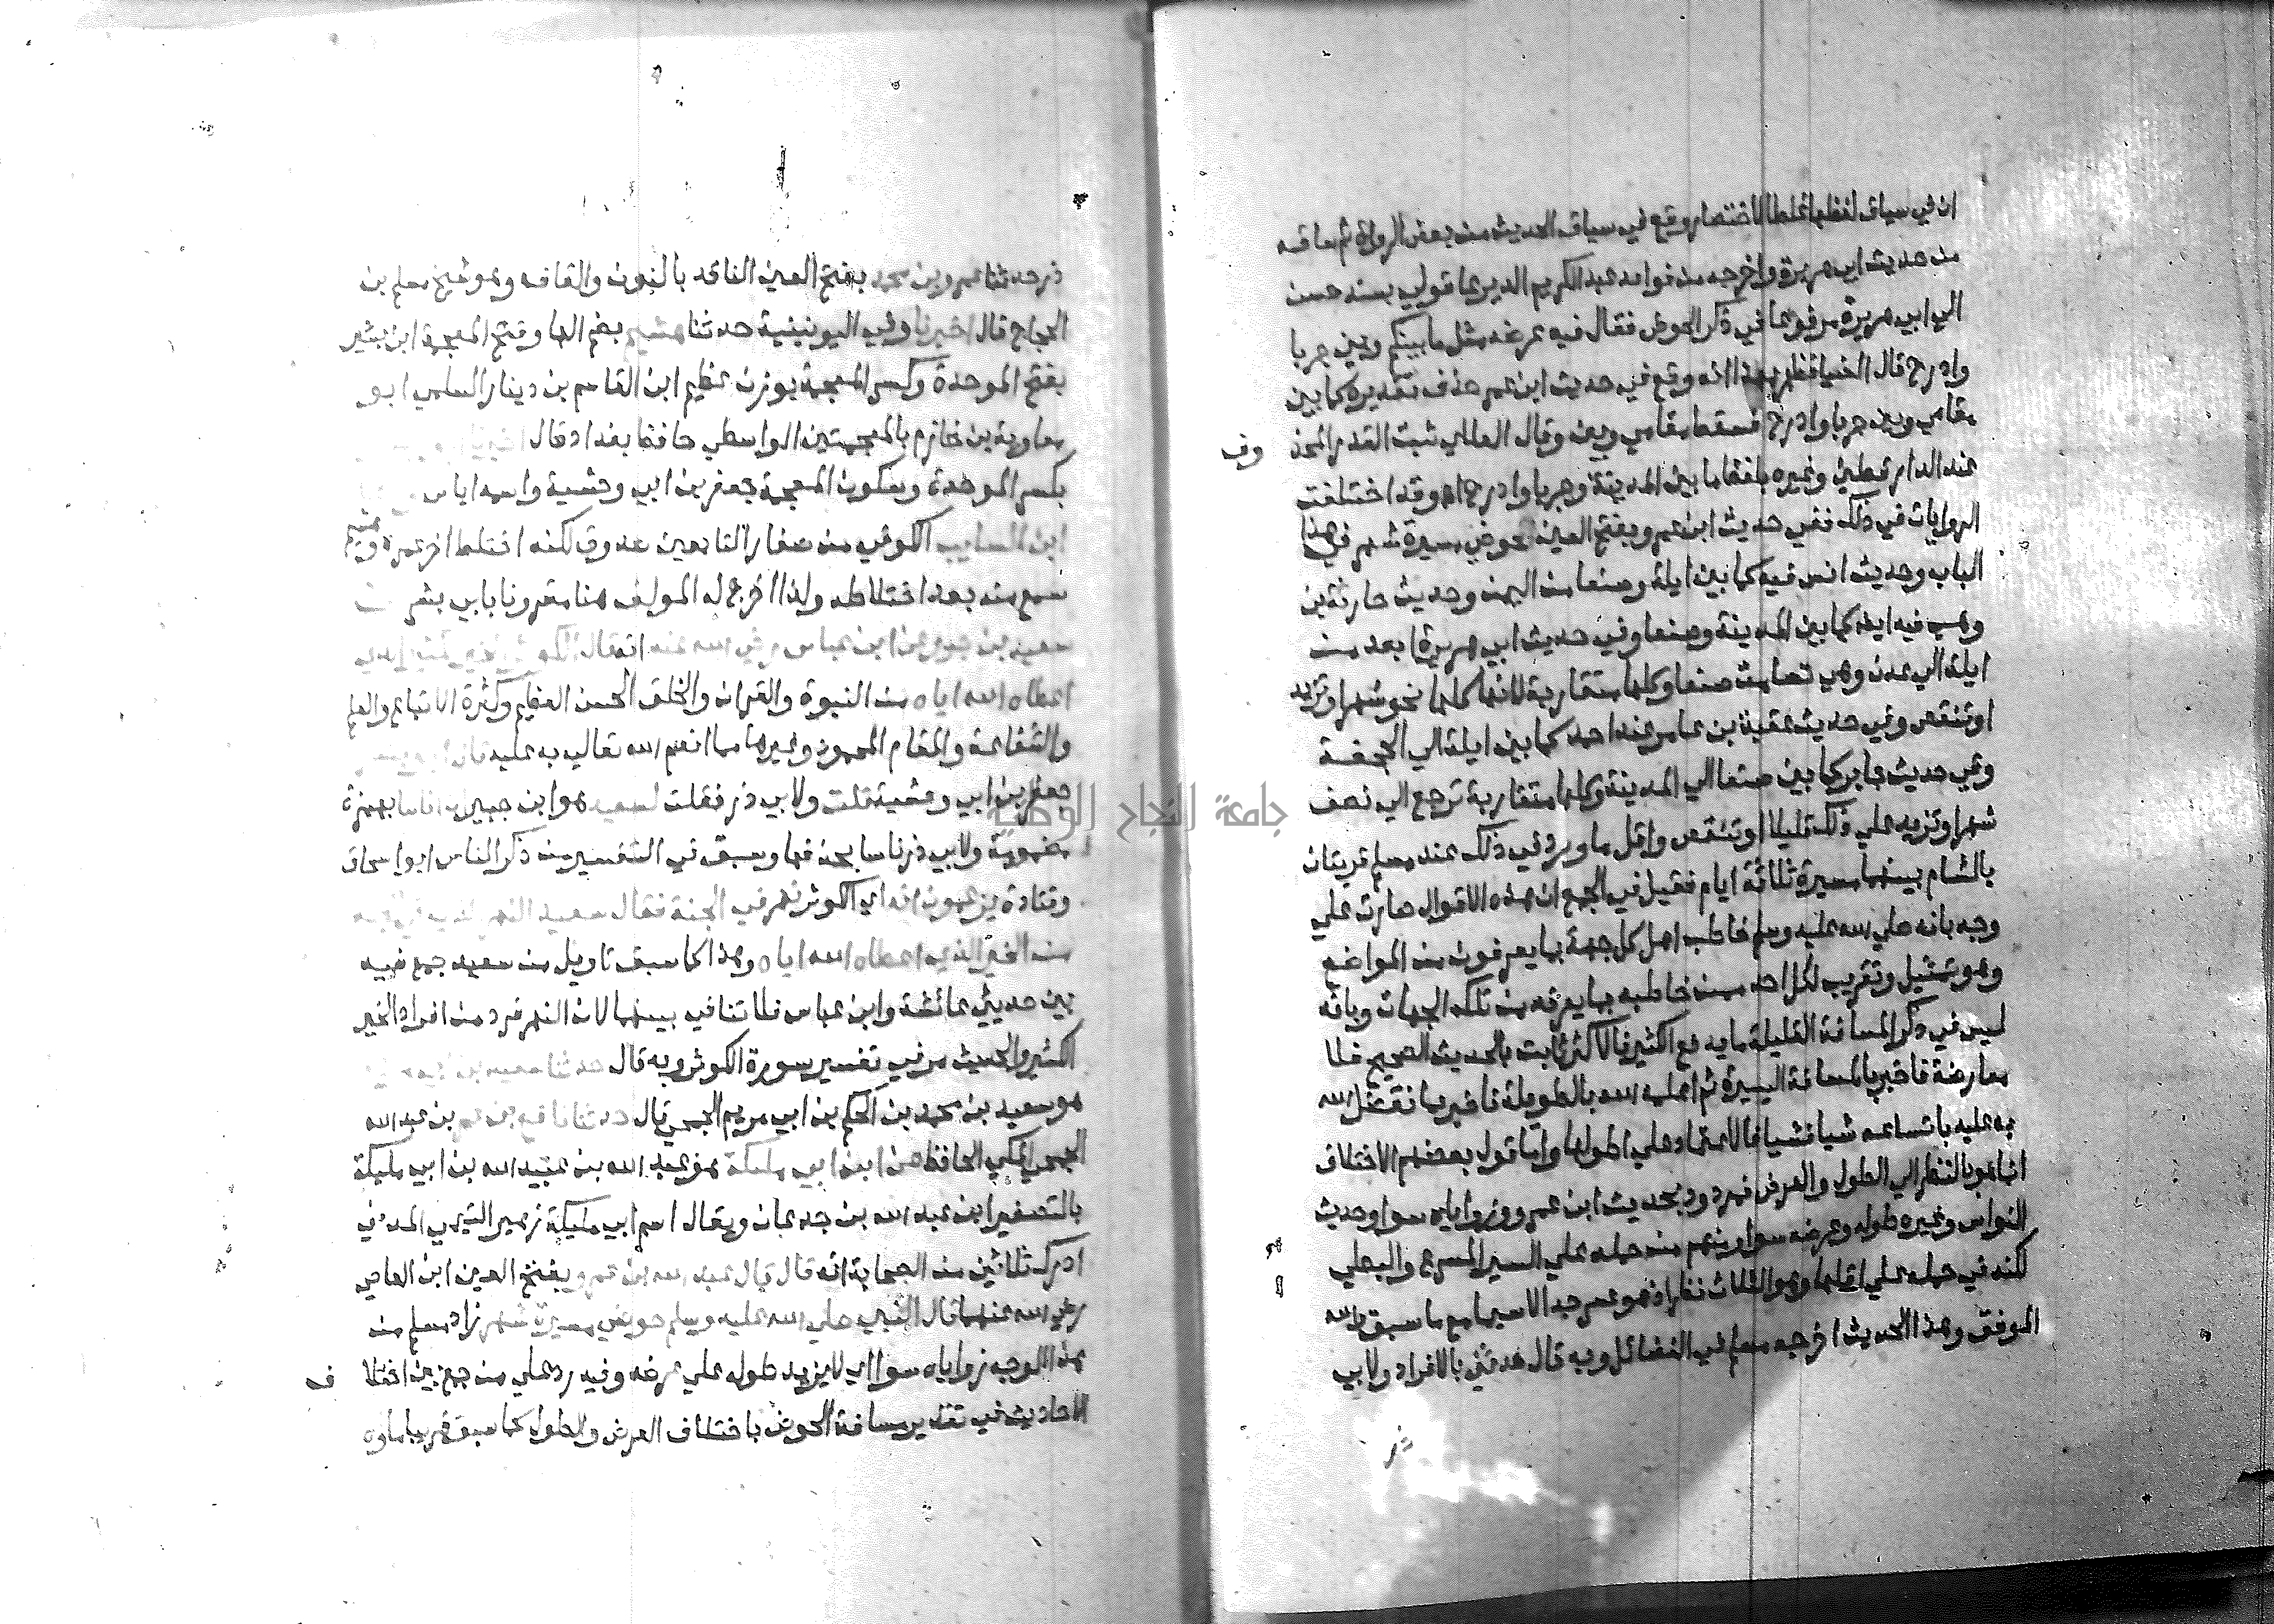 ان في سياق لفظها غلطا لاختصار وقع في سياق الحديث من بعض الرواة ثم ساقه
من حديث ابي هريرة واخرجه من فوايد عبد الكريم الديرعاقولي بسند حسن
الي ابي هريرة مرفوعا في ذكر الحوض فقال فيه عرضه مثل ما بينكم وبين جربا
وادرح قال الضيا فظهر بهذا انه وقع في حديث ابن عمر حذف تقديره كما بين
مقامي وبين جربا وادرح فسقط مقامي وبين وقال العلاي ثبت القدر المحذ
وف
عند الدارقطني وغيره بلفظ ما بين المدينة وجربا وادرح اه وقد اختلفت
الروايات في ذلك ففي حديث ابن عمرو بفتح العين حوضي مسيرة شهر في هذا
الباب وحديث انس فيه كما بين ايلة وصنعا من اليمن وحديث حارثة بن
وهب فيه ايضا كما بين المدينة وصنعا وفي حديث ابي هريرة ابعد من
ايلة الي عدن وهي تسامت صنعا وكلها متقاربة لانها كلها نحو شهر او تزيد
او تنقص وفي حديث عقبة بن عامر عند احمد كما بين ايلة الي الجحفة
وفي حديث جابر كما بين صنعا الي المدينة وكلها متقاربة ترجع الي نصف
شهر او تزيد علي ذلك قليلا او تنقص واقل ما ورد في ذلك عند مسلم قريتان
بالشام بينهما مسيرة ثلاثة ايام فقيل في الجمع ان هذه الاقوال صارت علي
وجه بانه صلي الله عليه وسلم خاطب اهل كل جهة بما يعرفون من المواضع
وهو تمثيل وتقريب لكل احد ممن خاطبه بما يعرفه من تلك الجهات وبانه
ليس في ذكر المسافة القليلة ما يدفع الكثير فالاكثر ثابت بالحديث الصحيح فلا
معارضة فاخبر بالمسافة اليسيرة ثم اعلمه الله بالطويلة فاخبر بما تفضل الله
به عليه باتساعه شيا فشيا فالاعتماد علي اطولها واما قول بعضهم الاختلاف
انما هو بالنظر الي الطول والعرض فمردود بحديث ابن عمرو وزواياه سوا وحديث
النواس وغيره طوله وعرضه سوا ومنهم من حمله علي السير المسرع والبطي
لكنه في حمله علي اقلها وهو الثلاث نظر اذ هو عسر جدا لاسيما مع ما سبق والله
الموفق وهذا الحديث اخرجه مسلم في الفضائل وبه قال حدثني بالافراد ولابي
ذر
ذر حدثنا عمرو بن محمد بفتح العين الناقد بالنون والقاف وهو شيخ مسلم بن
الحجاج قال اخبرنا وفي اليونينية حدثنا هشيم بضم الها وفتح المعجمة ابن بشير
بفتح الموحدة وكسر المعجمة بوزن عظيم ابن القاسم بن دينار السلمي ابو
معاوية بن خازم بالمعجمتين الواسطي حافظ بغداد قال
بكسر الموحدة وسكون المعجمة جعفر بن ابي وحشية واسمه اياس
ابن السايب الكوفي من صغار التابعين صدوق لكنه اختلط اخر عمره وهشيم
سمع منه بعد اختلاطه ولذا اخرج له المولف هنا مقرونا بابي بشر
سعيد بن جبير عن ابن عباس رضي الله عنه انه قال الكوثر الخير الكثير الذي
اعطاه الله اياه من النبوة والقران والخلق الحسن العظيم وكثرة الاتباع والعلم
والشفاعة والمقام المحمود وغيرها مما انعم الله تعالي به عليه قال ابو بشر
جعفر بن ابي وحشية قلت ولابي ذر فقلت لسعيد هو ابن جبير ان اناسا بهمزة
مضمومة ولابي ذر ناسا بحذفها وسبق في التفسير من ذكر الناس ابو اسحاق
وقتادة يزعمون انه اي الكوثر نهر في الجنة فقال سعيد النهر الذي في الجنة
من الخير الذي اعطاه الله اياه وهذا كما سبق تاويل من سعيد جمع فيه
بين حديثي عائشة وابن عباس فلا تنافي بينهما لان النهر فرد من افراد الخير
الكثير والحديث مر في تفسير سورة الكوثر وبه قال حدثنا سعيد بن ابي مريم
هو سعيد بن محمد بن الحكم بن ابي مريم الجمحي قال حدثنا نافع بن عمر بن عبد الله
الجمحي المكي الحافظ عن ابن ابي مليكة هو عبد الله بن عبيد الله بن ابي مليكة
بالتصغير ابن عبد الله بن جدعان ويقال اسم ابي مليكة زهير التيمي المدني
ادرك ثلاثين من الصحابة انه قال قال عبد الله بن عمرو بفتح العين ابن العاص
رضي الله عنهما قال النبي صلي الله عليه وسلم حوضي مسيرة شهر زاد مسلم من
هذا الوجه زواياه سوا اي لا يزيد طوله علي عرضه وفيه رد علي من جمع بين اختلا
ف
الاحاديث في تقدير مسافة الحوض باختلاف العرض والطول كما سبق قريبا ماوه
جامعة النجاح الوطنية